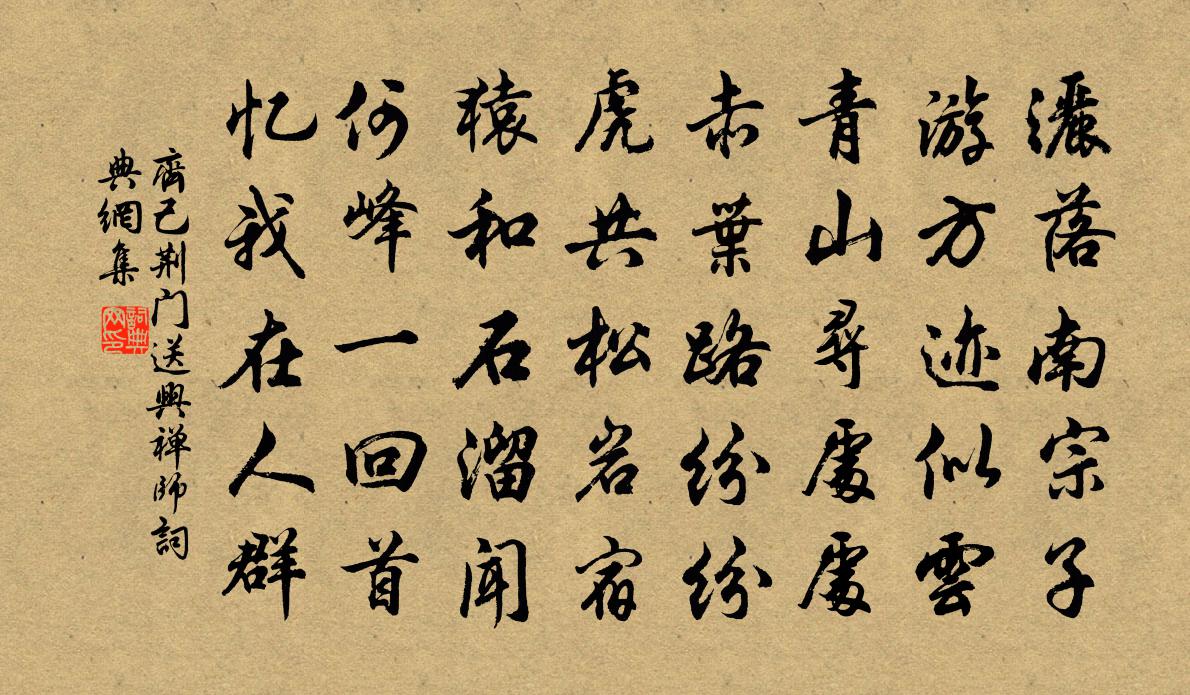 灑落南宗子
游方迹似雲
青山尋處處
赤葉路紛紛
虎共松岩宿
猿和石溜聞
何峰一回首
忆我在人群
齊己荆门送興禅師詞
典網集
詞典
网印